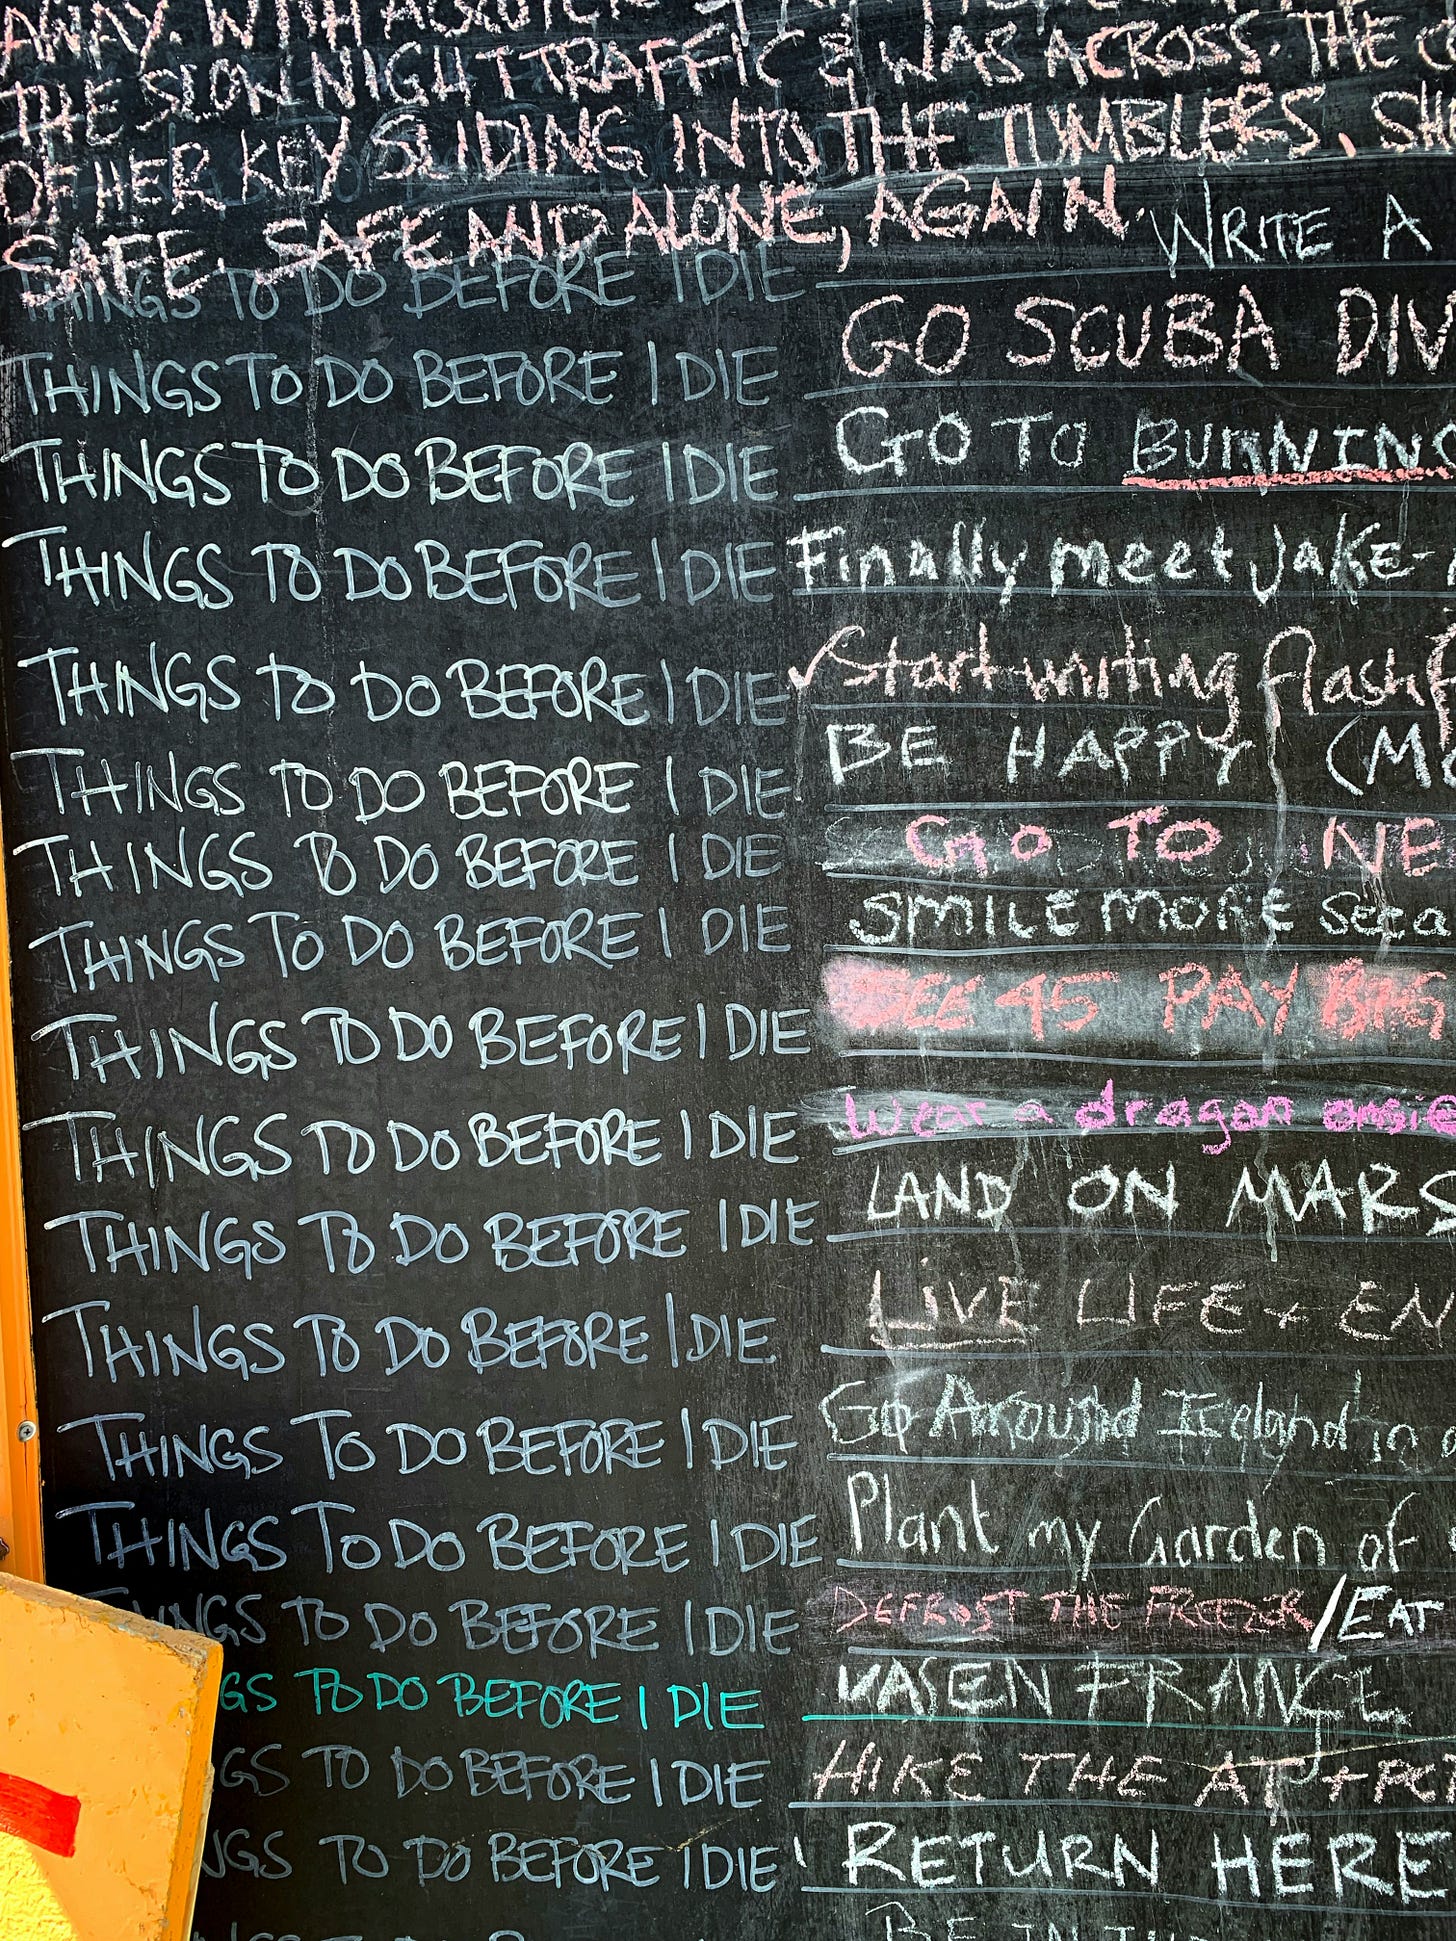 AWAY. WITH ABSOLUTE
THE SLOW NIGHT TRAFFIC & WAS ACROSS. THE
OF HER KEY SLIDING INTO THE TUMBLERS. SH
SAFE. SAFE AND ALONE, AGAIN.
THINGS TO DO BEFORE I DIE WRITE A
THINGS TO DO BEFORE I DIE GO SCUBA DIV
THINGS TO DO BEFORE I DIE GO TO BURNING
THINGS TO DO BEFORE I DIE Finally meet Jake-
THINGS TO DO BEFORE I DIE ✓Start writing flash f
THINGS TO DO BEFORE I DIE BE HAPPY (M
THINGS TO DO BEFORE I DIE GO TO NE
THINGS TO DO BEFORE I DIE SMILE MORE
THINGS TO DO BEFORE I DIE SEE 45 PAY BIG
THINGS TO DO BEFORE I DIE Wear a dragon onsie
THINGS TO DO BEFORE I DIE LAND ON MARS
THINGS TO DO BEFORE I DIE LIVE LIFE + EN
THINGS TO DO BEFORE I DIE Go Around Iceland in
THINGS TO DO BEFORE I DIE Plant my Garden of
NGS TO DO BEFORE I DIE DEFROST THE FREEZER /EAT
GS TO DO BEFORE I DIE EN FRANCE
GS TO DO BEFORE I DIE HIKE THE AT + PC
NGS TO DO BEFORE I DIE RETURN HERE
BE IN